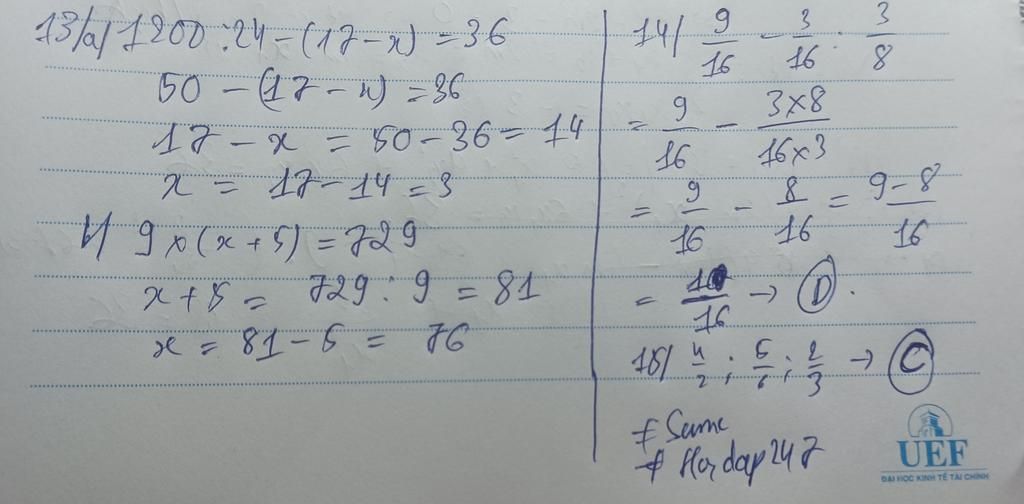 13/a/ 1200 : 24 - (17 - x) = 36
50 - (17 - x) = 36
17 - x = 50 - 36 = 14
x = 17 - 14 = 3
b/ 9 x (x + 5) = 729
x + 5 = 729 : 9 = 81
x = 81 - 5 = 76
14/ 9/16 - 3/16 : 3/8
= 9/16 - 3x8/16x3
= 9/16 - 8/16 = 9-8/16
= 1/16 → D.
15/ ; ; 2/3 → C
# Sume
# Hoidap247
UEF
ĐẠI HỌC KINH TẾ TÀI CHÍNH